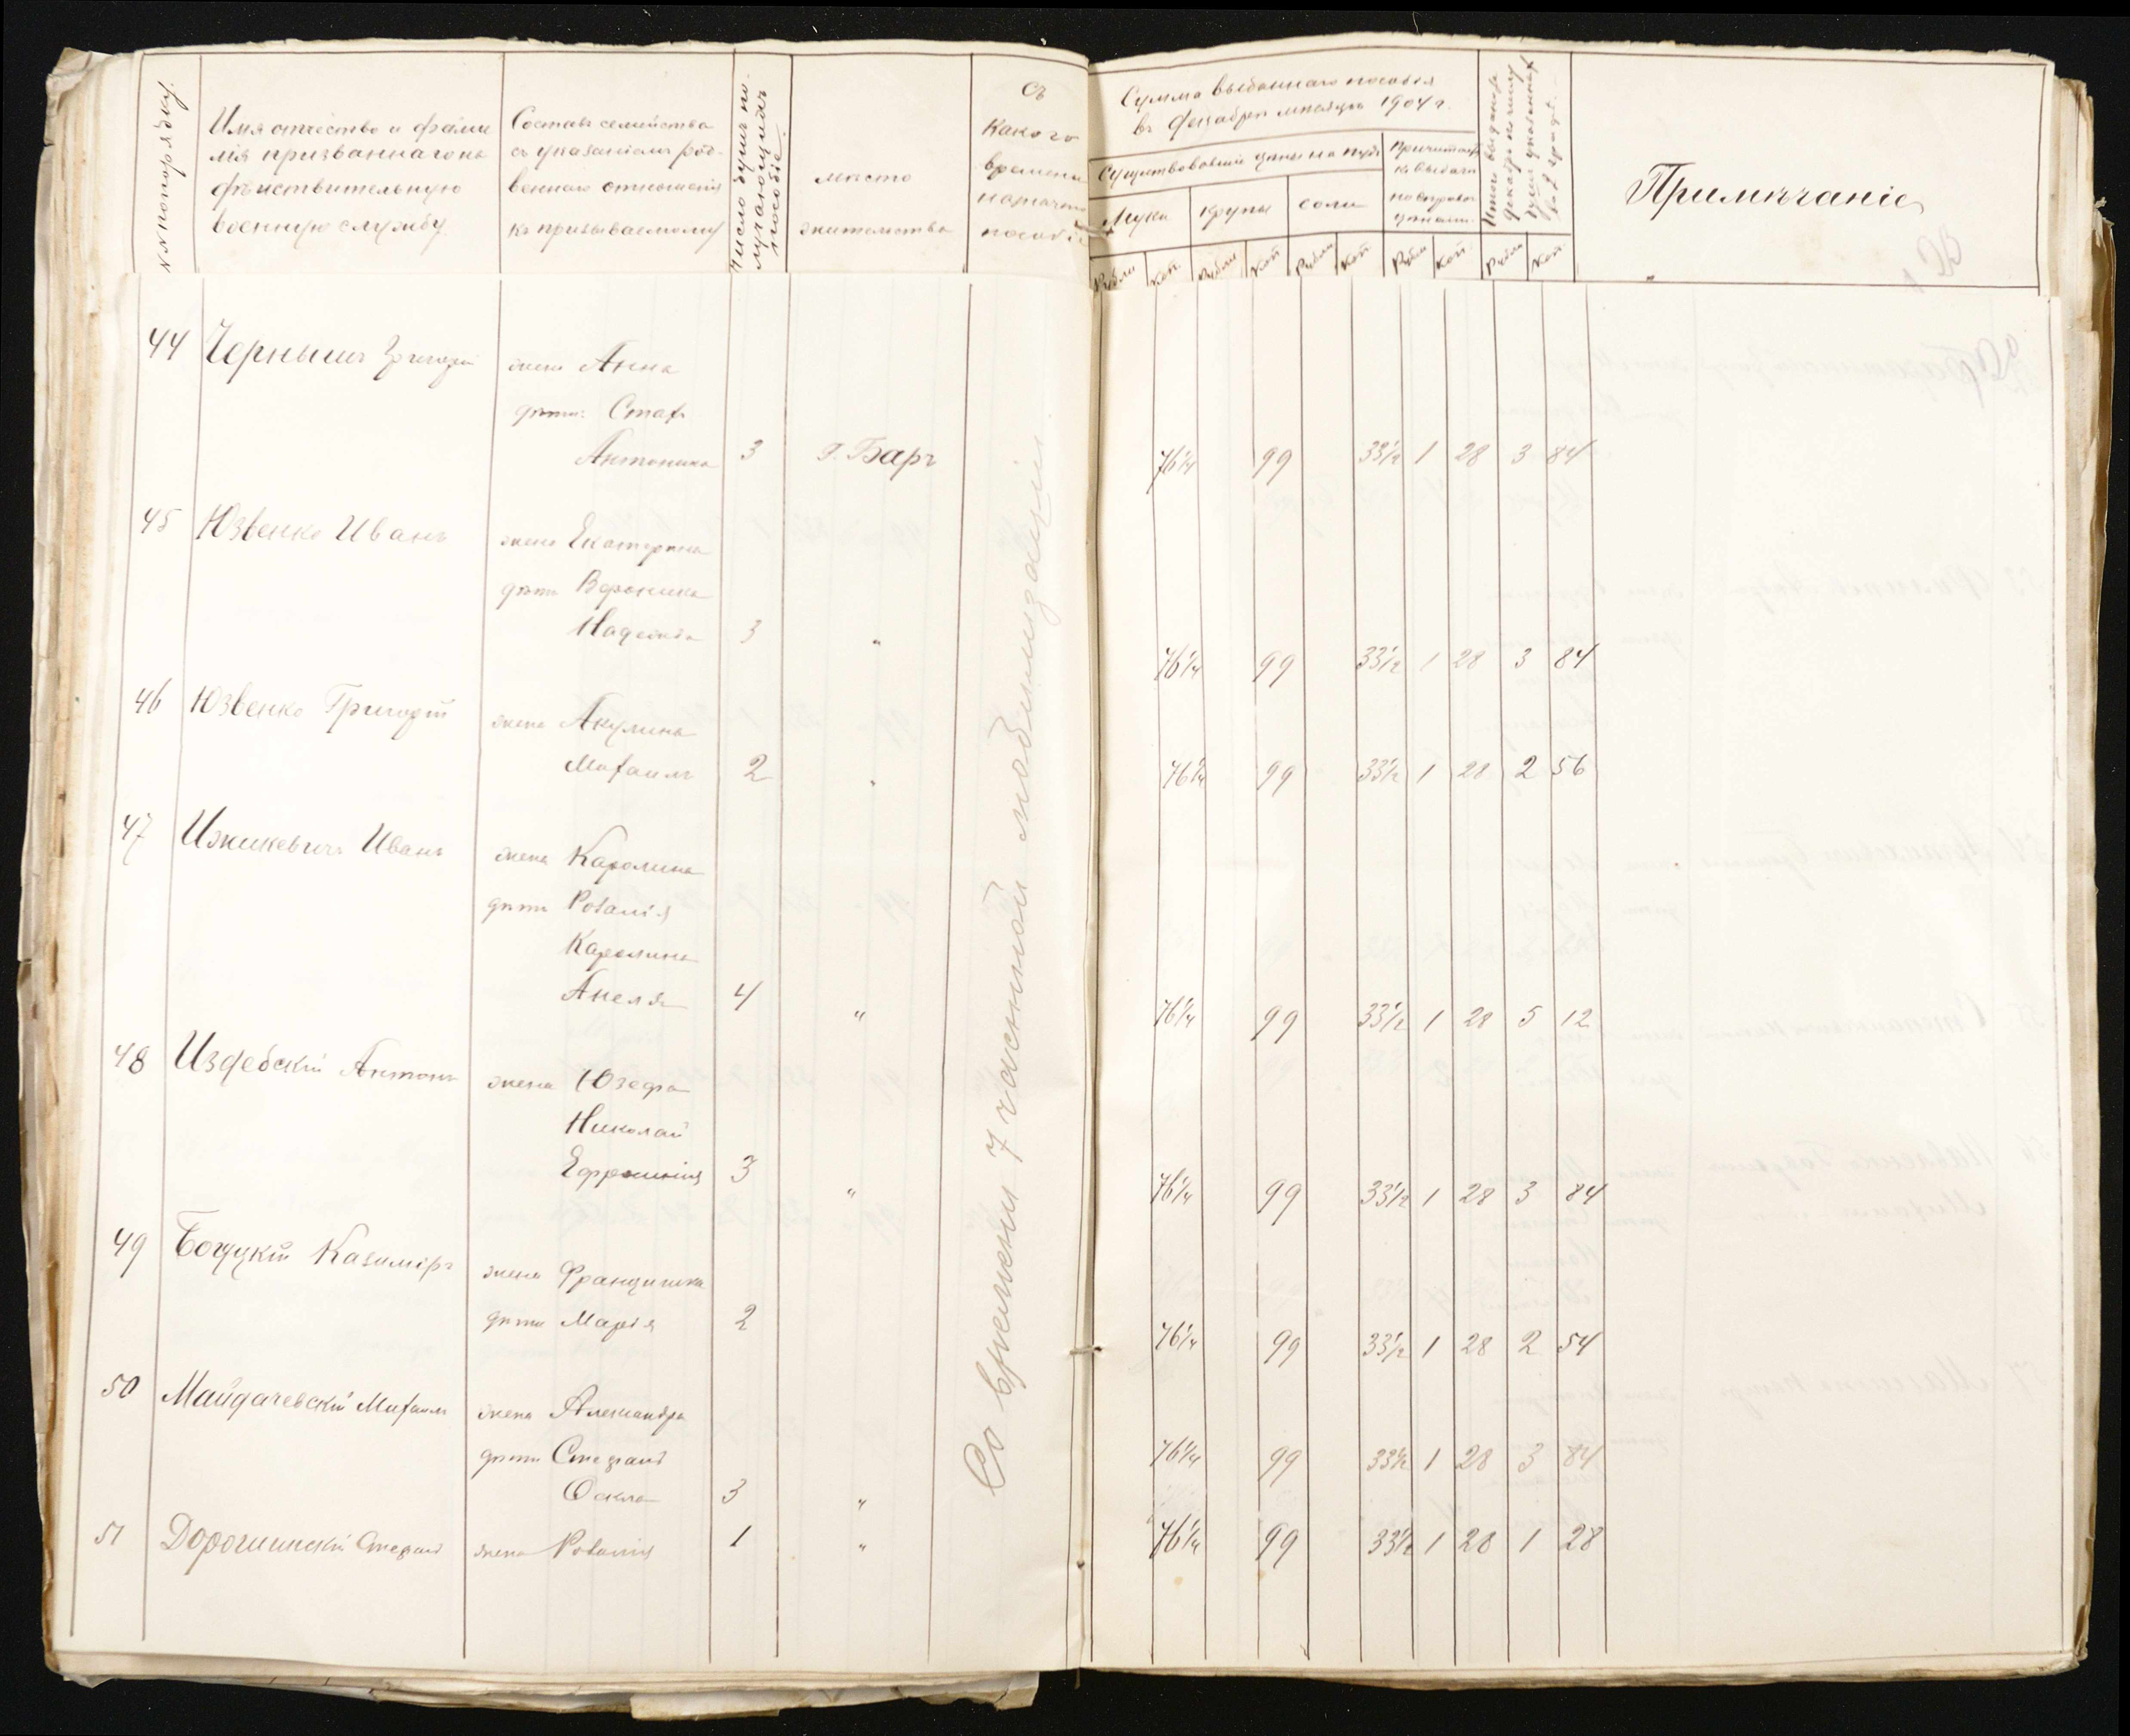 №№ по порядку.
Имя отчество и фами
лія призваннаго на
дѣйствительную
военную службу.
Составъ семейства
съ указаніемъ род-
веннаго отношенія
къ призываемому
Число душъ по-
лучающихъ
пособіе.
мѣсто
жительства
Съ
какого
времени
назначено
пособіе
Сумма выданнаго пособія
въ Декабрѣ мѣсяцѣ 1904 г.
Существовавшія цѣны на пудъ
Муки
крупы
соли
Причитает
къ выдачи
цѣнами.
Рубли
Коп
Рубли
Коп
Рубли
Коп
Рубли
Коп
Рубли
Коп
Примѣчаніе
44 Чернышъ Григорій жена Анна
дѣти: Стах
Антонина 3 г. Баръ 76¼ 99 33½ 1 28 3 84
45 Юзвенко Иванъ жена Екатерина
дѣти Вероника
Надежда 3 " 76¼ 99 33½ 1 28 3 84
46 Юзвенко Григорій жена Акулина
Михаилъ 2 " 76¼ 99 33½ 1 28 2 56
47 Ижикевичъ Иванъ жена Каролина
дѣти Розалія
Каролина
Анеля 4 " 76¼ 99 33½ 1 28 5 12
48 Издебскій Антонъ жена Юзефа
Николай
Ефросинія 3 " 76¼ 99 33½ 1 28 3 84
49 Богуцкій Казиміръ жена Францишка
дѣти Марія 2 76¼ 99 33½ 1 28 2 54
50 Майдачевскій Михаилъ жена Александра
дѣти Стефанъ
Ѳекла 3 " 76¼ 99 33½ 1 28 3 84
51 Дорошинскій Стефанъ жена Розалія 1 " 76¼ 99 33½ 1 28 1 28
Со времени 7 частной мобилизаціи